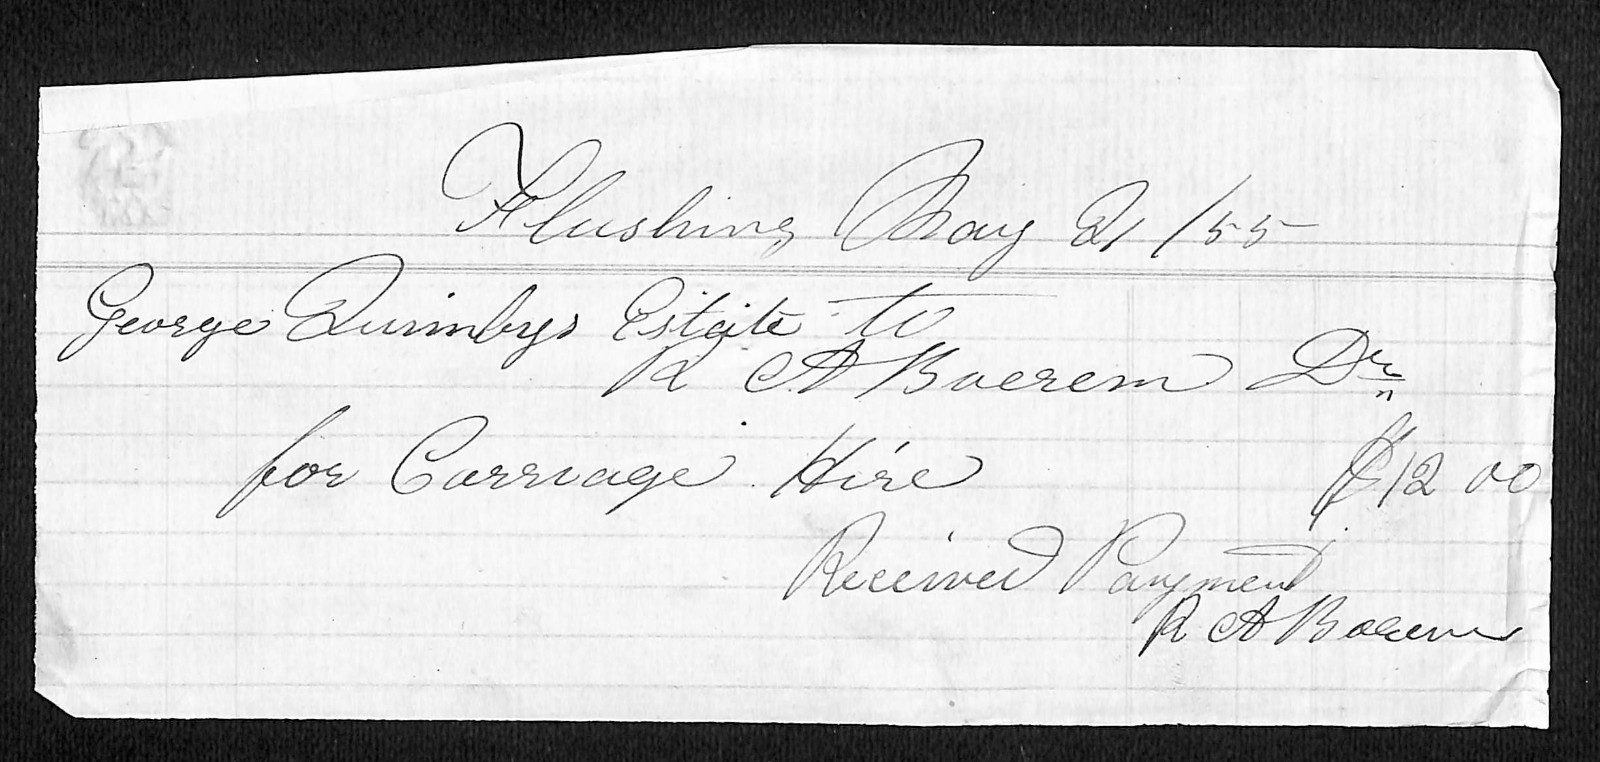 Flushing May 21 /55
George Quimbys Estate to
R A Boerem Dr
for Carriage Hire $12 00
Received Payment
R A Boerem